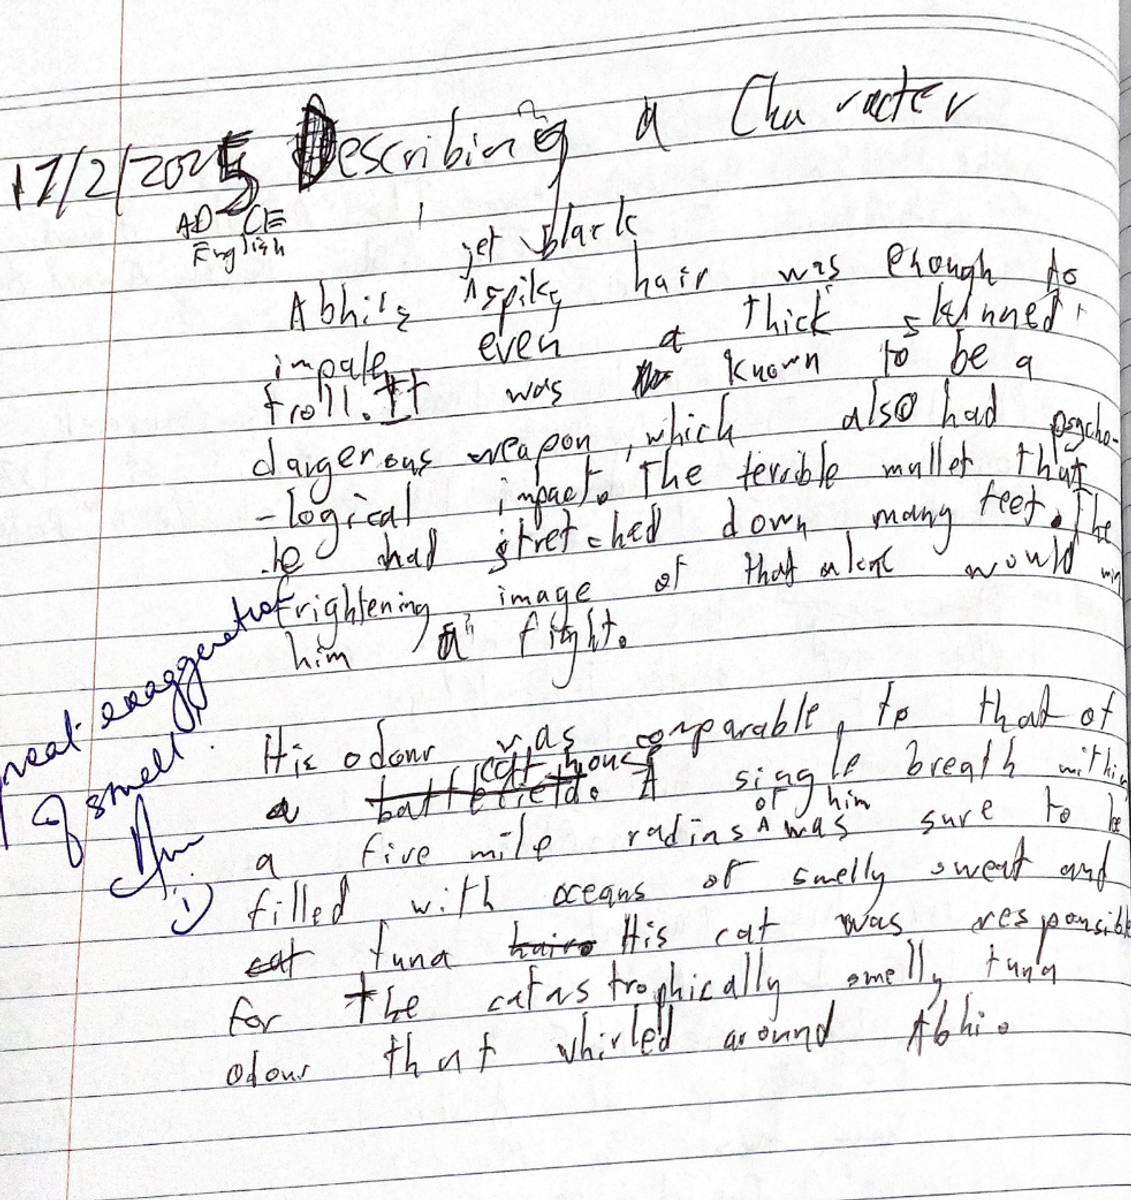 17/2/2025 Describing a Character
AD CE
English
jet black
Abhi's spiky hair was enough to
impale even a thick skinned
troll. It was known to be a
dangerous weapon, which also had psycho-
-logical impact. The terrible mullet that
he had stretched down many feet. The
frightening image of that alone would win
him a fight.
Great exaggeration
of smell
:)
His odour was comparable to that of
a cat house
battlefield. A single breath within
of him
a five mile radius was sure to be
filled with oceans of smelly sweat and
cat tuna hair. His cat was responsible
for the catastrophically smelly tuna
odour that whirled around Abhi.